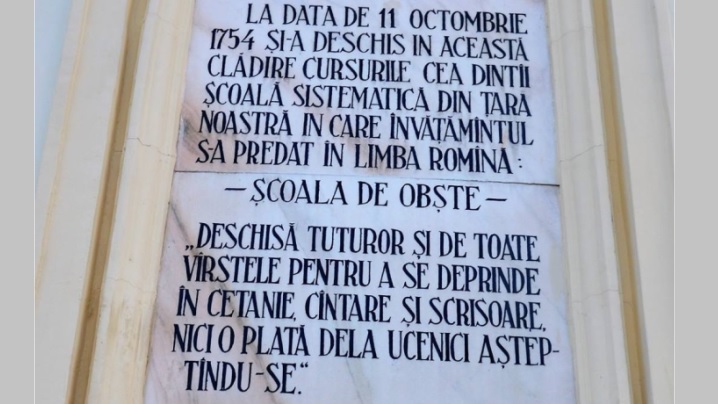 LA DATA DE 11 OCTOMBRIE
1754 ȘI-A DESCHIS IN ACEASTĂ
CLĂDIRE CURSURILE CEA DINTÎI
ȘCOALĂ SISTEMATICĂ DIN ȚARA
NOASTRĂ IN CARE ÎNVĂȚĂMÎNTUL
S-A PREDAT ÎN LIMBA ROMÎNĂ:
— ȘCOALA DE OBȘTE —
„DESCHISĂ TUTUROR ȘI DE TOATE
VÎRSTELE PENTRU A SE DEPRINDE
ÎN CETANIE, CÎNTARE ȘI SCRISOARE,
NICI O PLATĂ DELA UCENICI AȘTEP-
TÎNDU-SE.“